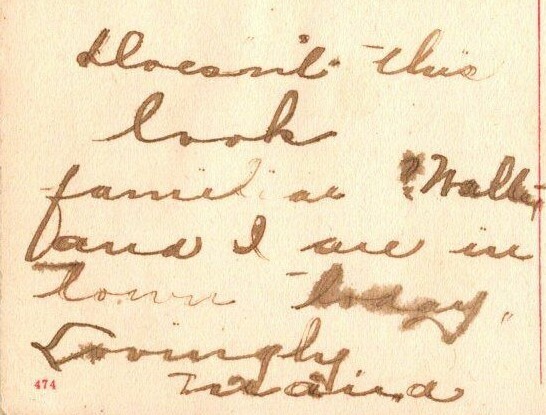 Doesn't this
look
familiar ? Walter
and I are in
Town today.
Lovingly
474